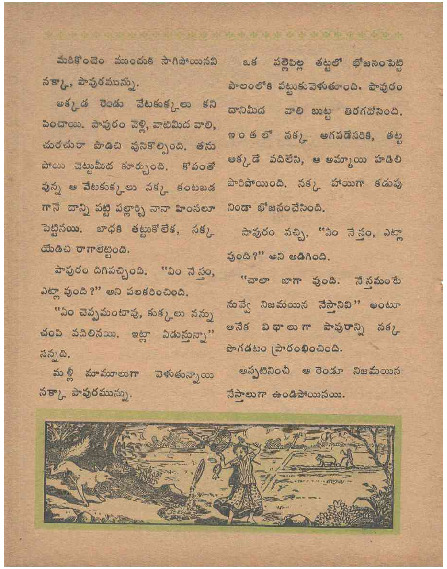 మరికొంచెం ముందుకి సాగిపోయినవి
నక్కా, పావురమున్ను.
అక్కడ రెండు వేటకుక్కలు కని
పించాయి. పావురం వెళ్లి, వాటిమీద వాలి,
చురచురా పొడిచి వుసికొల్పింది. తను
పోయి చెట్టుమీద కూర్చుంది. కోపంతో
వున్న ఆ వేటకుక్కలు నక్క కంటబడ
గానే దాన్ని పట్టి పల్లార్చి నానా హింసలూ
పెట్టినయి. బాధకి తట్టుకోలేక, నక్క
యేడిచి రాగాలెట్టింది.
పావురం దిగివచ్చింది. “ఏం నేస్తం,
ఎట్లా వుంది?” అని పలకరించింది.
“ఏం చెప్పమంటావు, కుక్కలు నన్ను
చంపి వదిలినయి. ఇట్లా ఏడుస్తున్నా”
నన్నది.
మళ్లీ మామూలుగా వెళుతున్నాయి
నక్కా పావురమున్ను.
ఒక పల్లెపిల్ల తట్టలో భోజనంపెట్టి
పొలంలోకి పట్టుకువెళుతూంది. పావురం
దానిమీద వాలి బుట్ట తిరగబోసింది.
ఇంతలో నక్క అగపడేసరికి, తట్ట
అక్కడే వదిలేసి, ఆ అమ్మాయి హడలి
పారిపోయింది. నక్క హాయిగా కడుపు
నిండా భోజనంచేసింది.
పావురం వచ్చి, “ఏం నేస్తం, ఎట్లా
వుంది?” అని అడిగింది.
“చాలా బాగా వుంది. నేస్తమంటే
నువ్వే నిజమయిన నేస్తానివి” అంటూ
అనేక విధాలుగా పావురాన్ని నక్క
పొగడటం ప్రారంభించింది.
అప్పటినించీ ఆ రెండూ నిజమయిన
నేస్తాలుగా ఉండిపోయినయి.